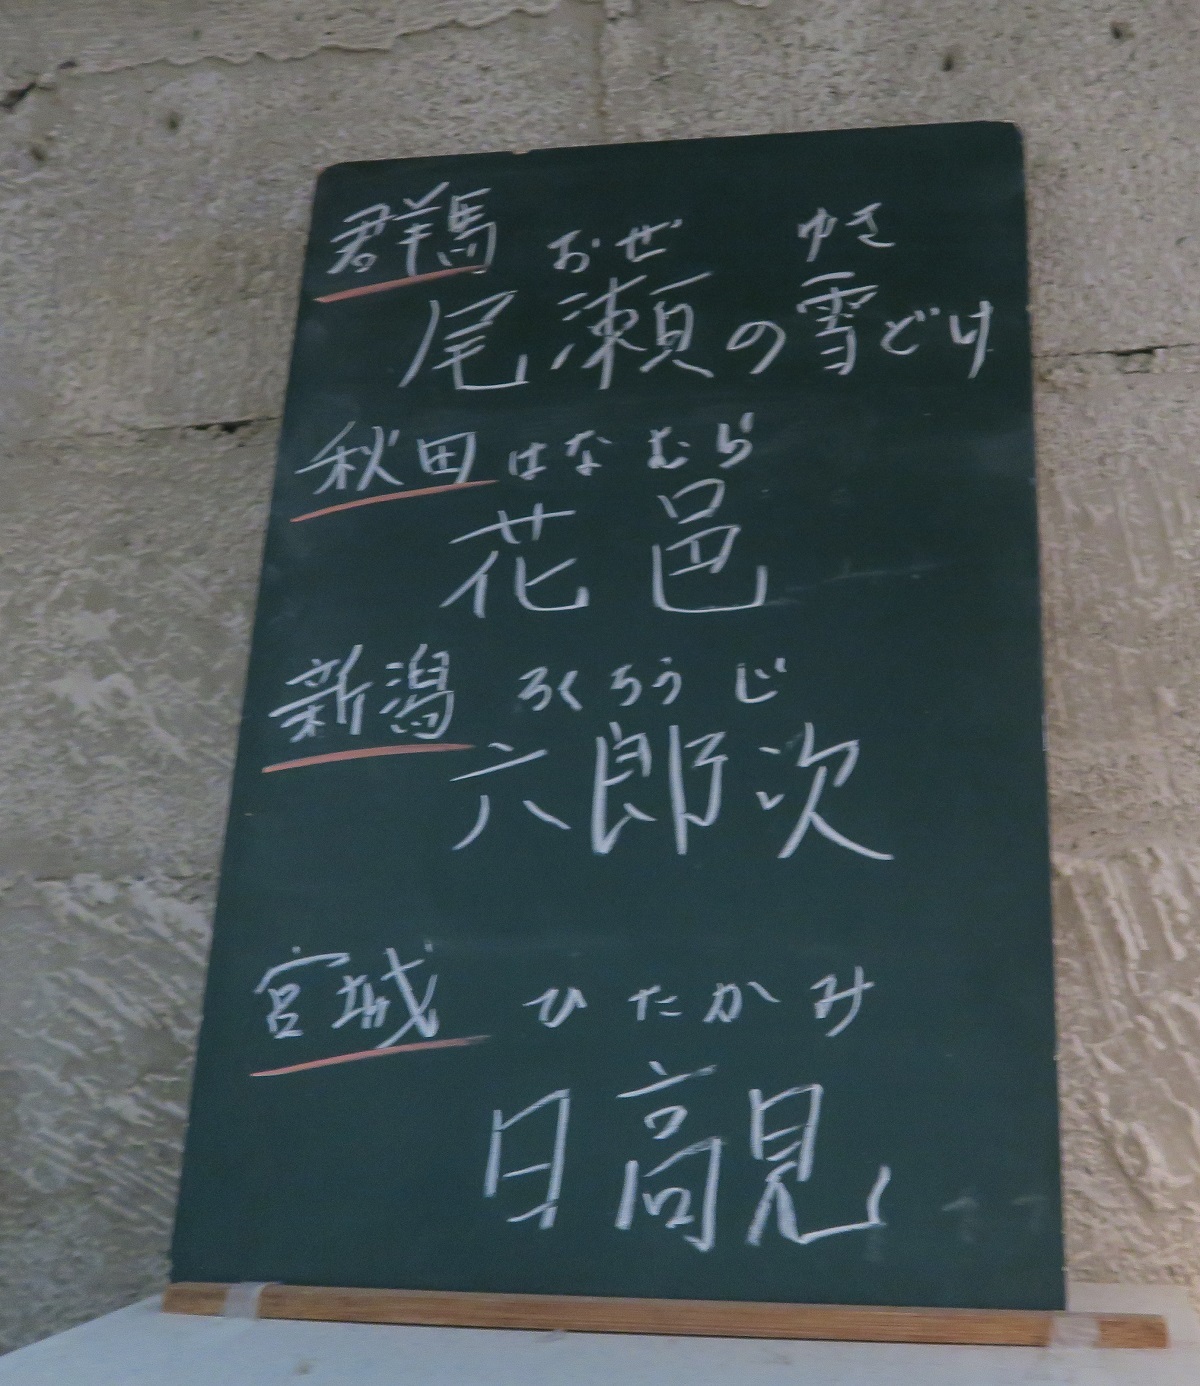 群馬 おぜ ゆき
尾瀬の雪どけ
秋田 はなむら
花邑
新潟 ろくろうじ
六郎次
宮城 ひたかみ
日高見